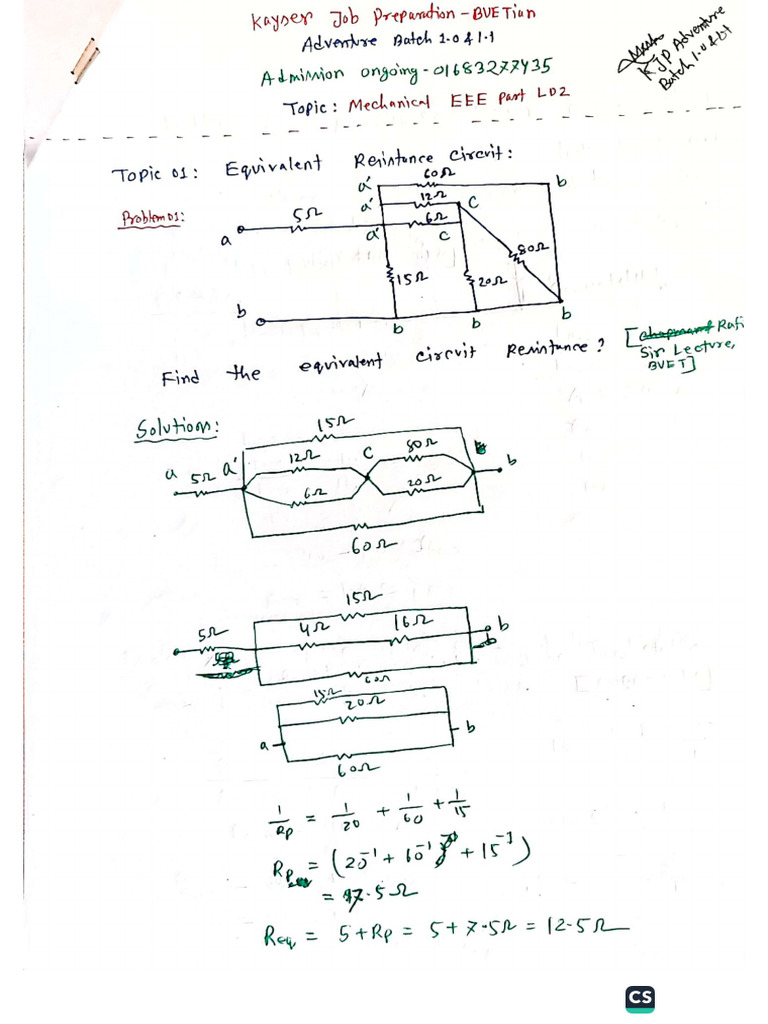 Kayser Job Preparation - BUETian
Adventure Batch 1.0 & 1.1
Admission ongoing - 01683277435
Topic: Mechanical EEE Part L02
KJP Adventure
Batch 1.0 & 1.1
Topic 01: Equivalent Resistance Circuit:
Problem 01:
a' 60Ω b
a' 12Ω c
5Ω a' 6Ω c
a
80Ω
15Ω 20Ω
b b b b
Find the equivalent circuit Resistance?
[Rafi
Sir Lecture,
BUET]
Solution:
15Ω
a 5Ω a' 12Ω c 80Ω b
6Ω 20Ω
60Ω
15Ω
5Ω 4Ω 16Ω b
b
60Ω
15Ω
20Ω
a b
60Ω
1/Rp = 1/20 + 1/60 + 1/15
Rp = (20⁻¹ + 60⁻¹ + 15⁻¹)
= 7.5Ω
Req = 5 + Rp = 5 + 7.5Ω = 12.5Ω
CS